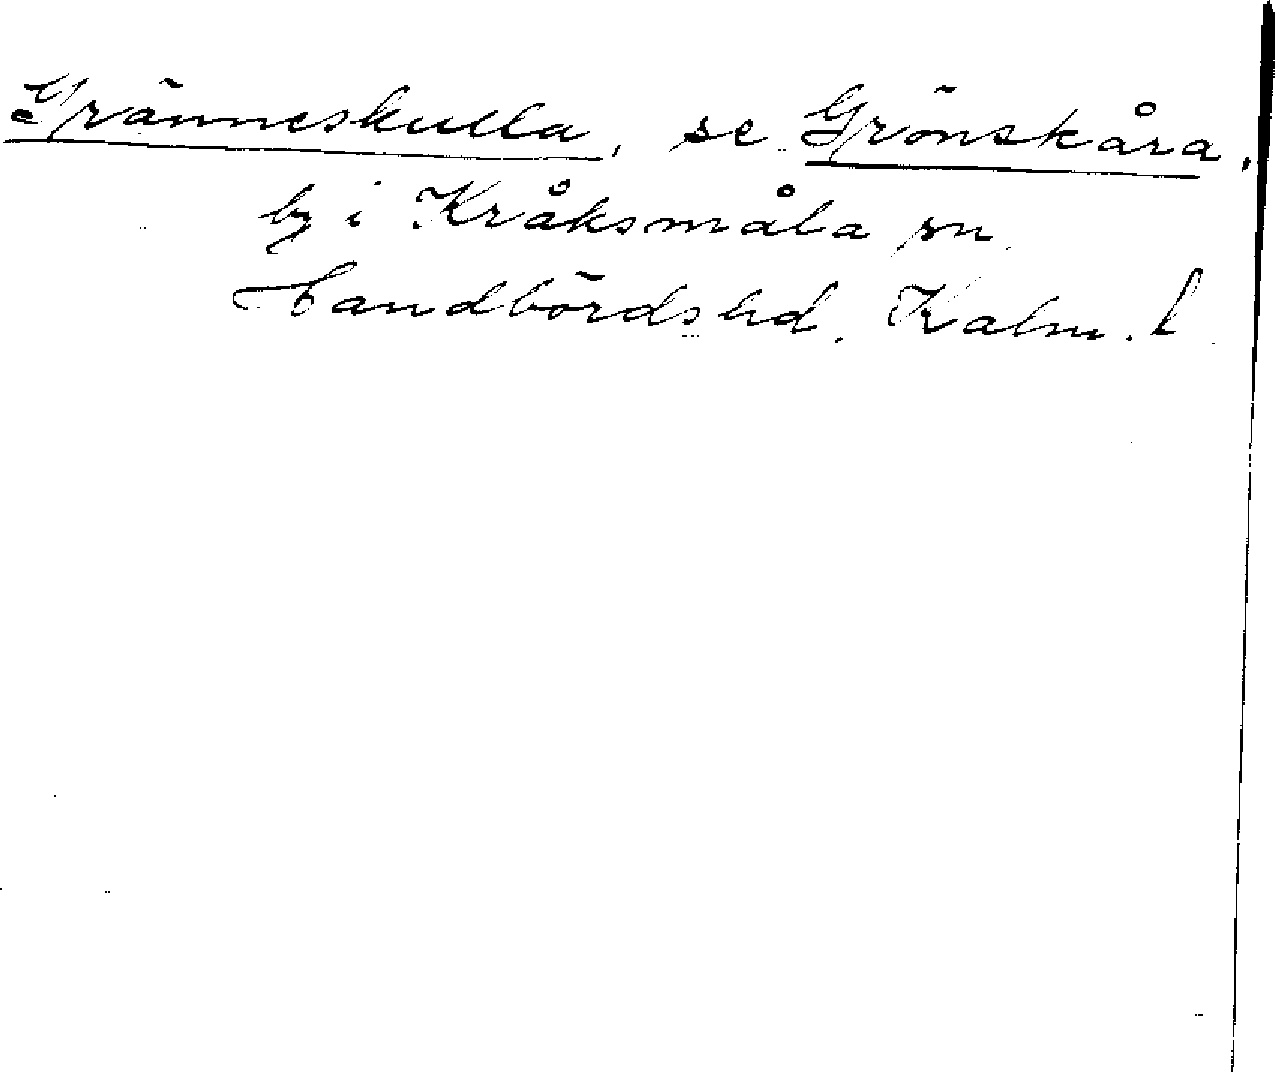 Gränneskulla, se Grönskåra,
by i Kråksmåla sn,
Handbörds hd, Kalm. l